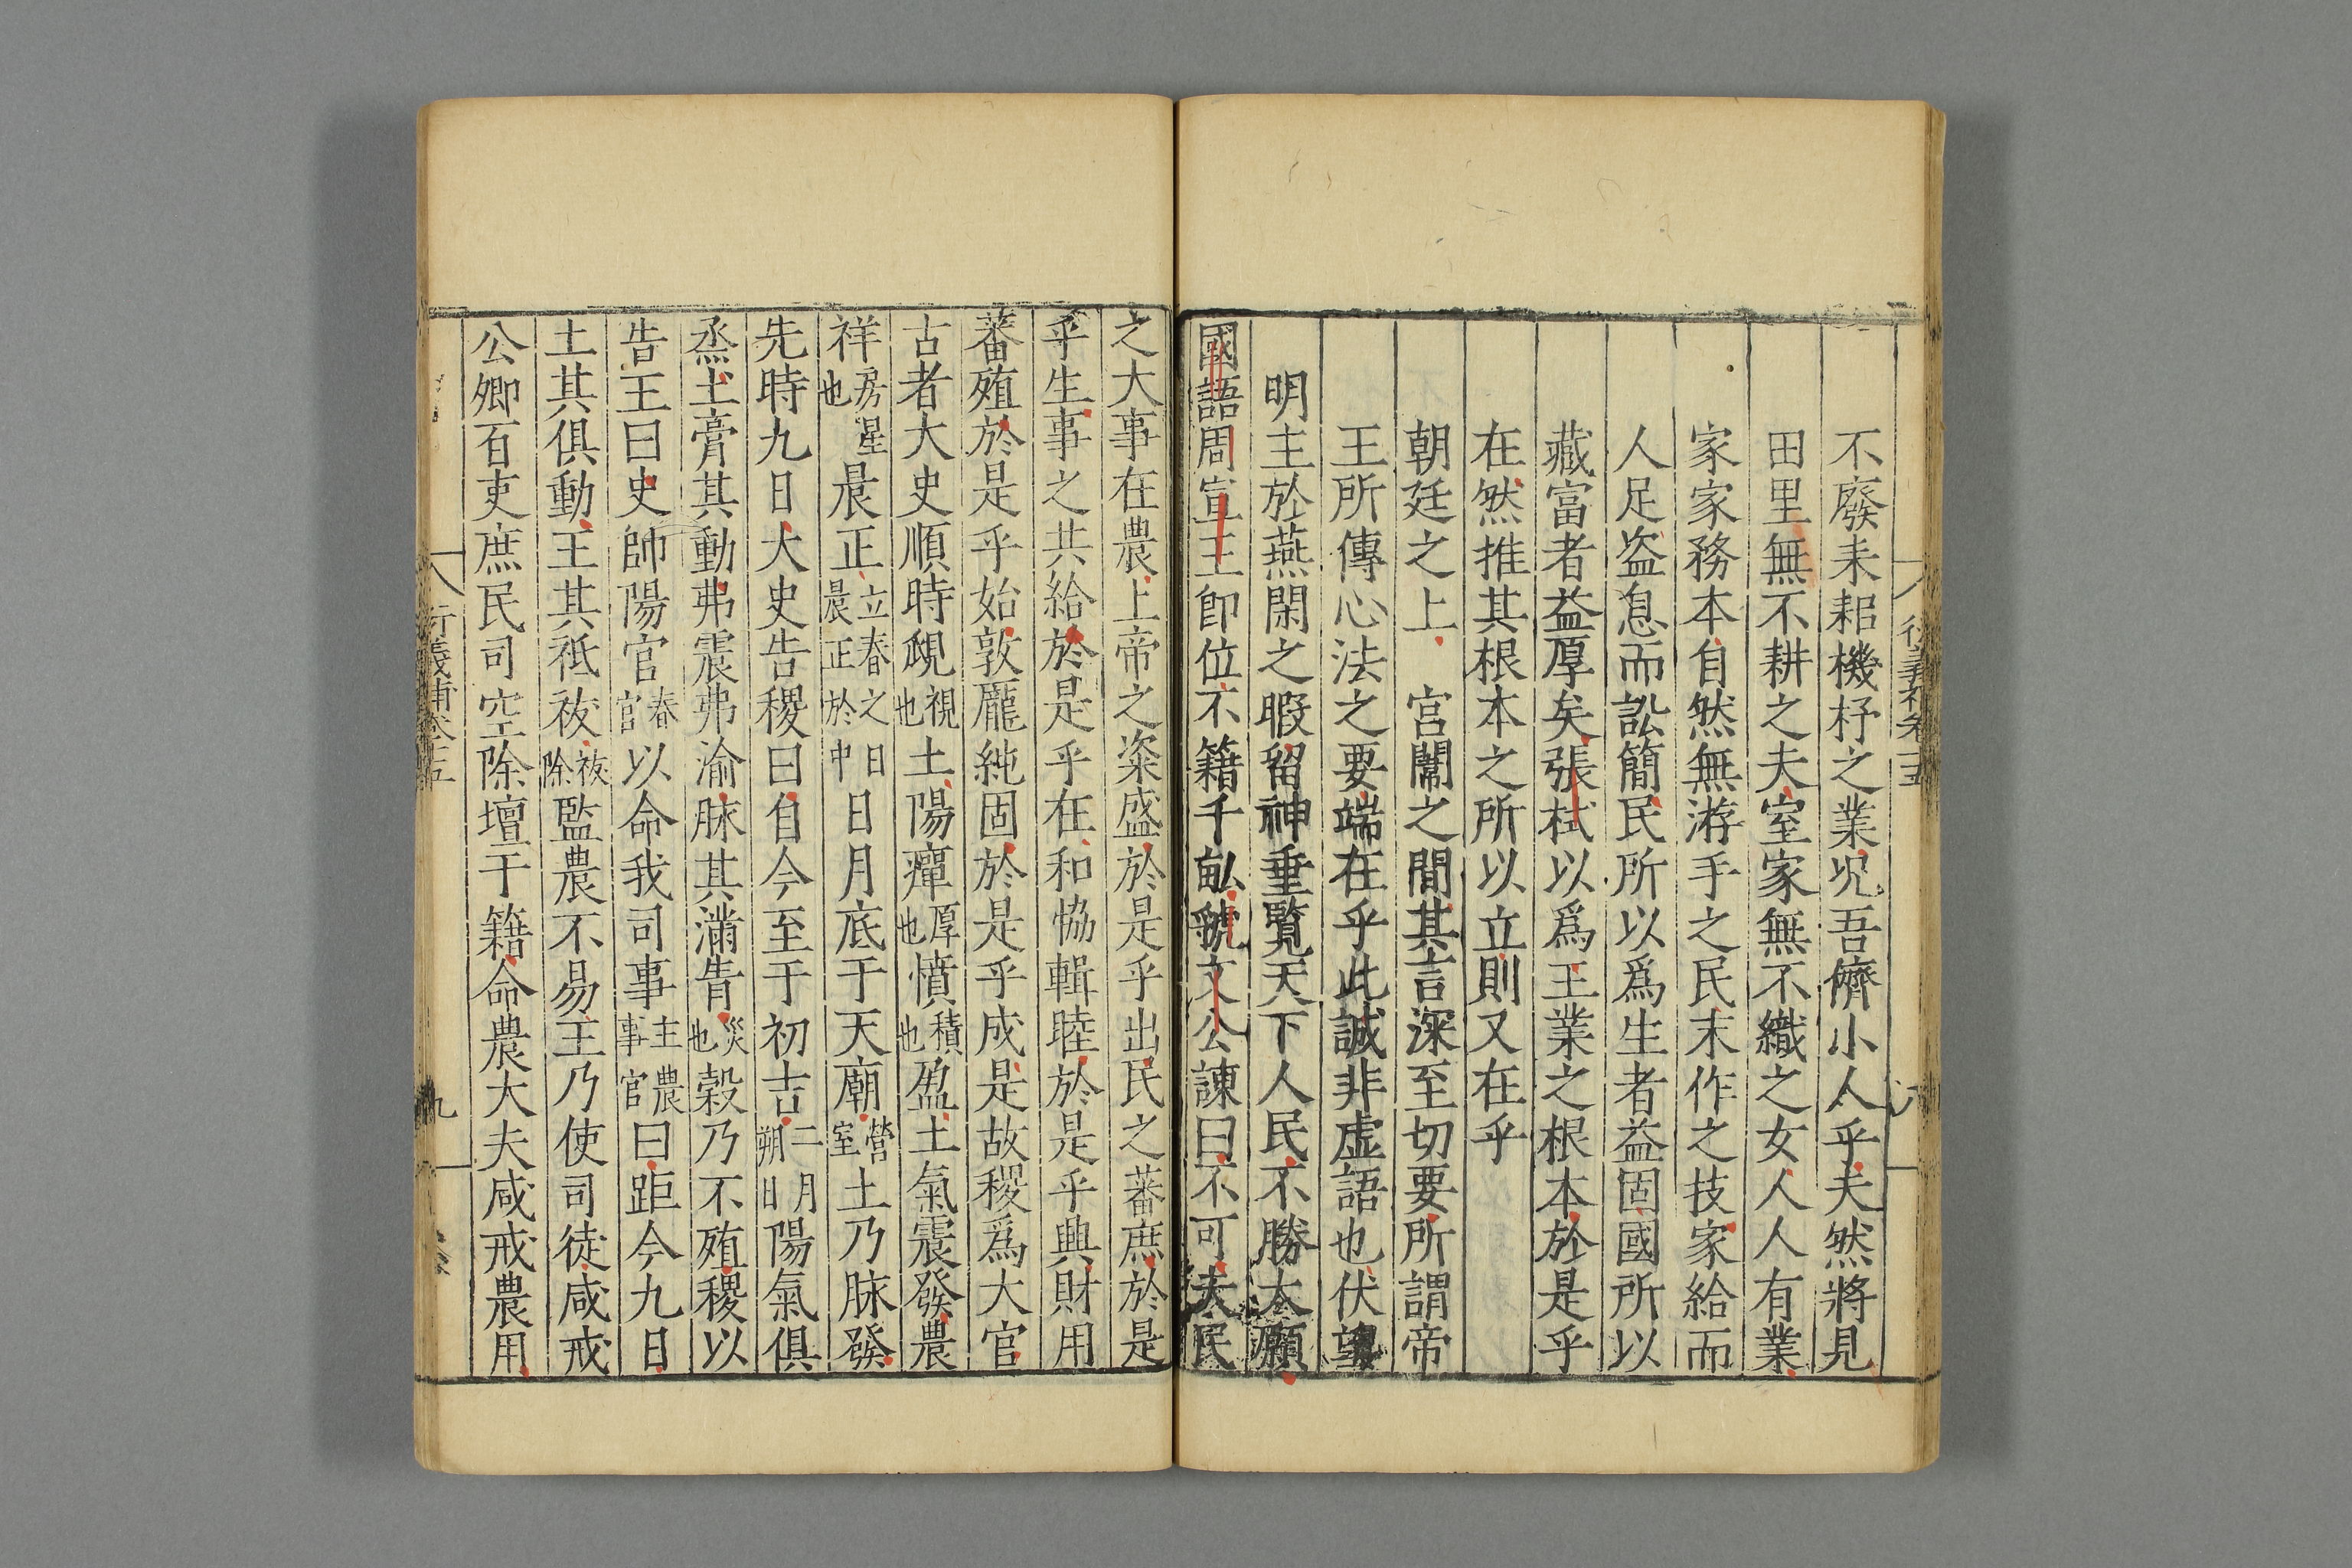 不廢耒耜機杼之業況吾儕小人乎夫然將見
田里無不耕之夫室家無不織之女人人有業
家家務本自然無游手之民末作之技家給而
人足盗息而訟簡民所以爲生者益固國所以
藏富者益厚矣張栻以爲王業之根本於是乎
在然推其根本之所以立則又在乎
朝廷之上 宮闈之間其言深至切要所謂帝
王所傳心法之要端在乎此誠非虚語也伏望
明主於燕閑之暇留神垂覧天下人民不勝大願
國語周宣王卽位不籍千畝虢文公諫曰不可夫民
之大事在農上帝之粢盛於是乎出民之蕃庶於是
乎生事之共給於是乎在和恊輯睦於是乎興財用
蕃殖於是乎始敦龐純固於是乎成是故稷爲大官
古者大史順時覛視也土陽癉厚也憤積也盈土氣震發農
祥房星也晨正立春之日晨正於中日月底于天廟營室土乃脉發
先時九日大史告稷曰自今至于初吉二月朔日陽氣俱
烝土膏其動弗震弗渝脉其滿眚災也穀乃不殖稷以
告王曰史帥陽官春官以命我司事主農事官曰距今九日
土其俱動王其祗祓祓除監農不易王乃使司徒咸戒
公卿百吏庶民司空除壇于籍命農大夫咸戒農用
衍義補卷十五
九